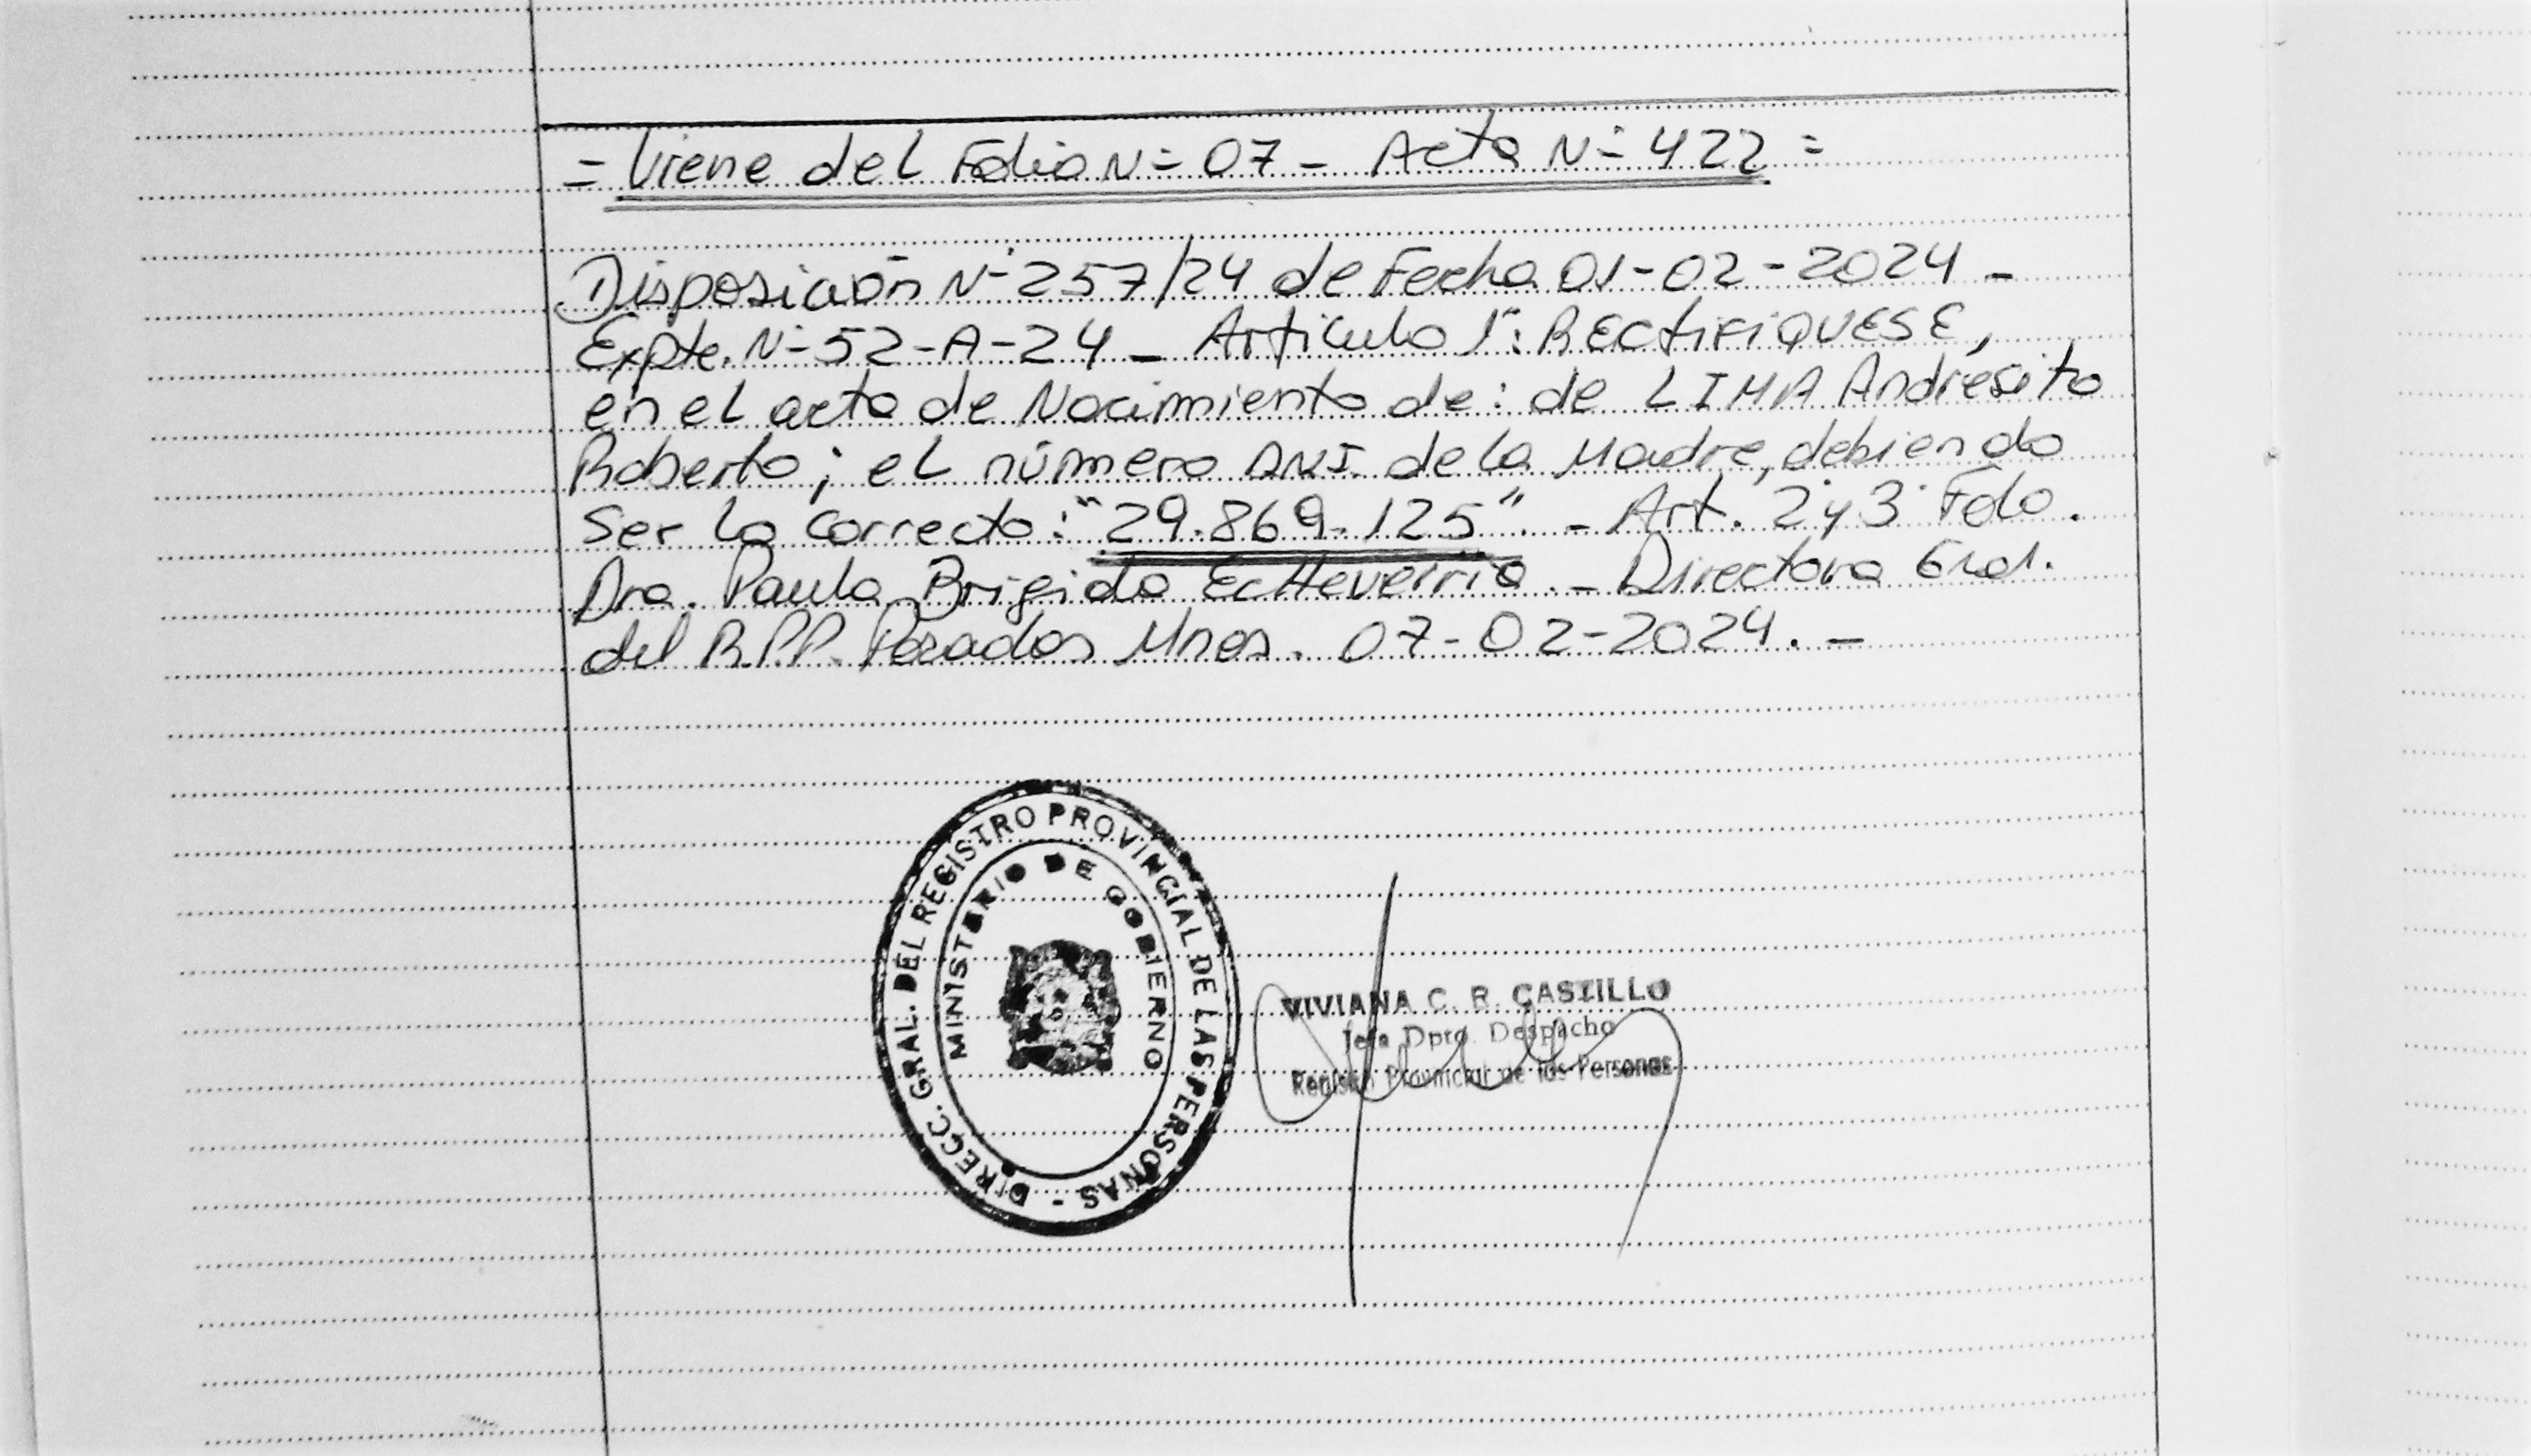 = Viene del Folio N= 07 - Acta N= 422 =
Disposición N° 257/24 de Fecha 01-02-2024 -
Expte. N° 52-A-24 - Artículo 1°: RECTIFIQUESE,
en el acta de Nacimiento de: de LIMA Andresito
Roberto; el número DNI. de la Madre, debiendo
Ser lo correcto: "29.869.125". - Art. 2° y 3° Fdo.
Dra. Paula Brigida Echeverria. - Directora Gral.
del R.P.P. Posadas Mnes. 07-02-2024. -
DIRECC. GRAL. DEL REGISTRO PROVINCIAL DE LAS PERSONAS -
MINISTERIO DE GOBIERNO
VIVIANA C. R. CASTILLO
Jefa Dpto. Despacho
Registro Provincial de las Personas